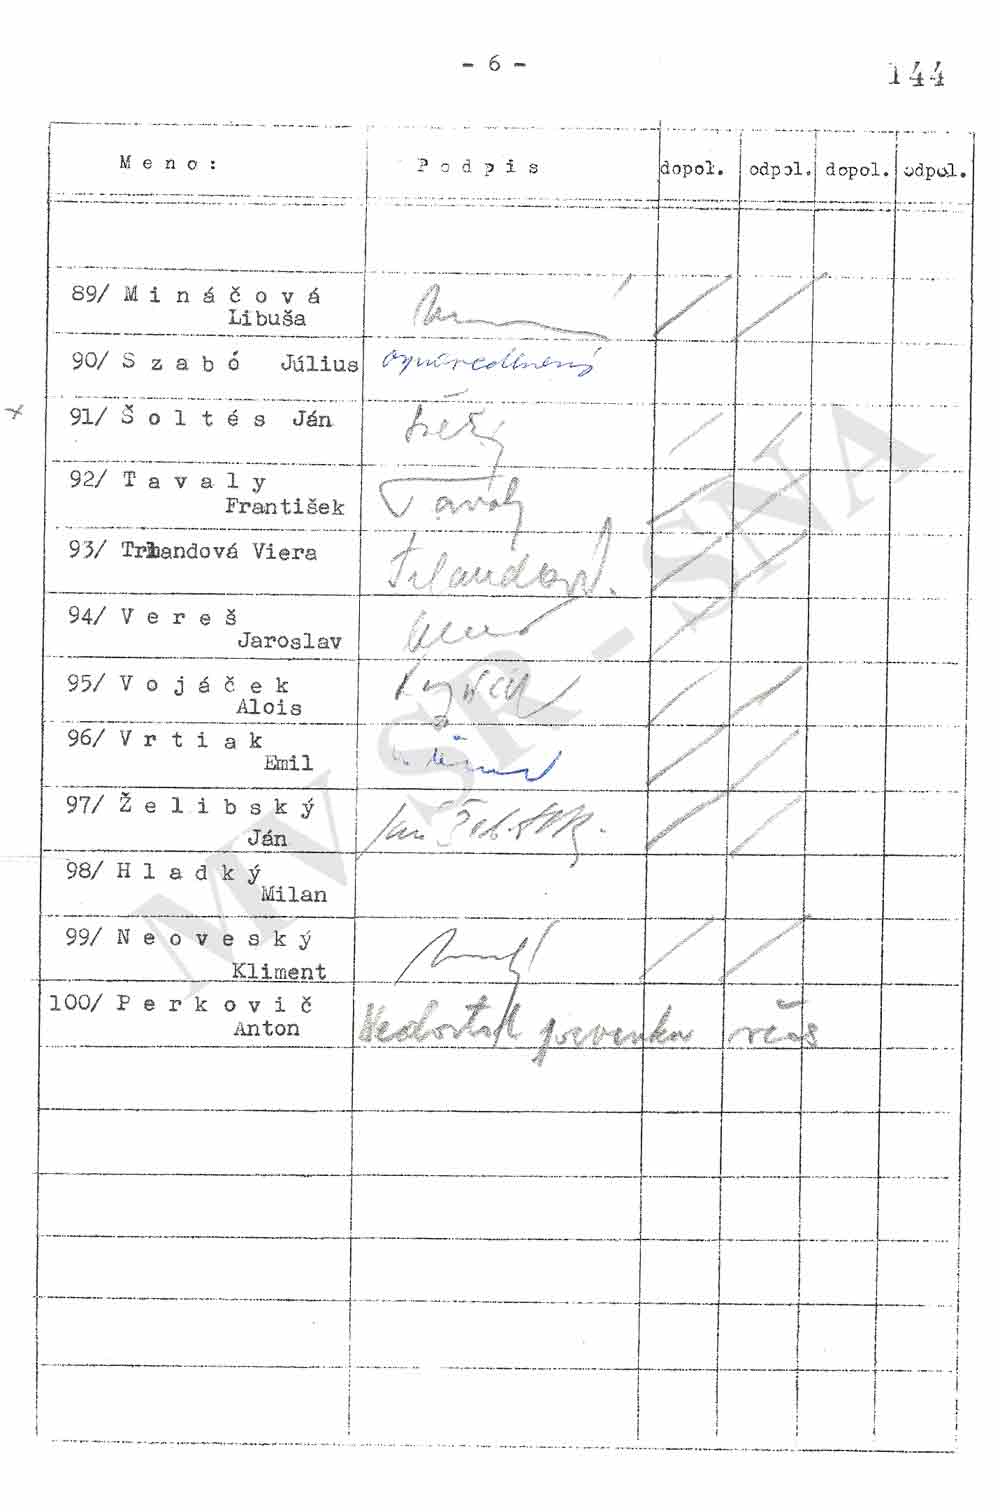 - 6 -
144
Meno: Podpis dopol. odpol. dopol. odpol.
89/ Mináčová
Libuša
90/ Szabó Július ospravedlnený
91/ Šoltés Ján
92/ Tavaly
František Tavaly
93/ Trlandová Viera Trlandová
94/ Vereš
Jaroslav
95/ Vojáček
Alois
96/ Vrtiak
Emil
97/ Želibský
Ján Ján Želibský
98/ Hladký
Milan
99/ Neoveský
Kliment
100/ Perkovič
Anton Nedostal pozvánku včas
MV SR - SNA